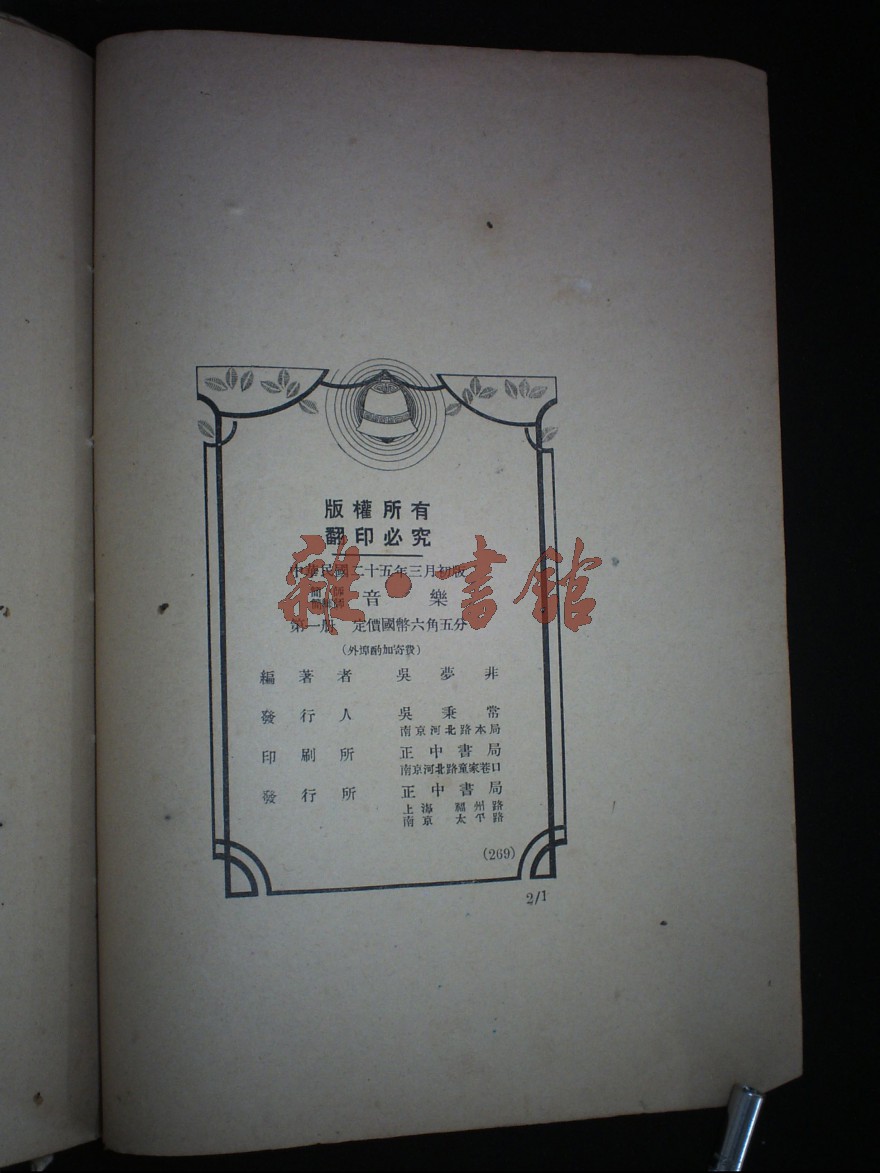 版權所有
翻印必究
中華民國二十五年三月初版
音樂
第一册 定價國幣六角五分
(外埠酌加寄費)
編著者 吳夢非
發行人 吳秉常
南京河北路本局
印刷所 正中書局
南京河北路童家巷口
發行所 正中書局
上海福州路
南京太平路
(269)
2/1
雜·書館